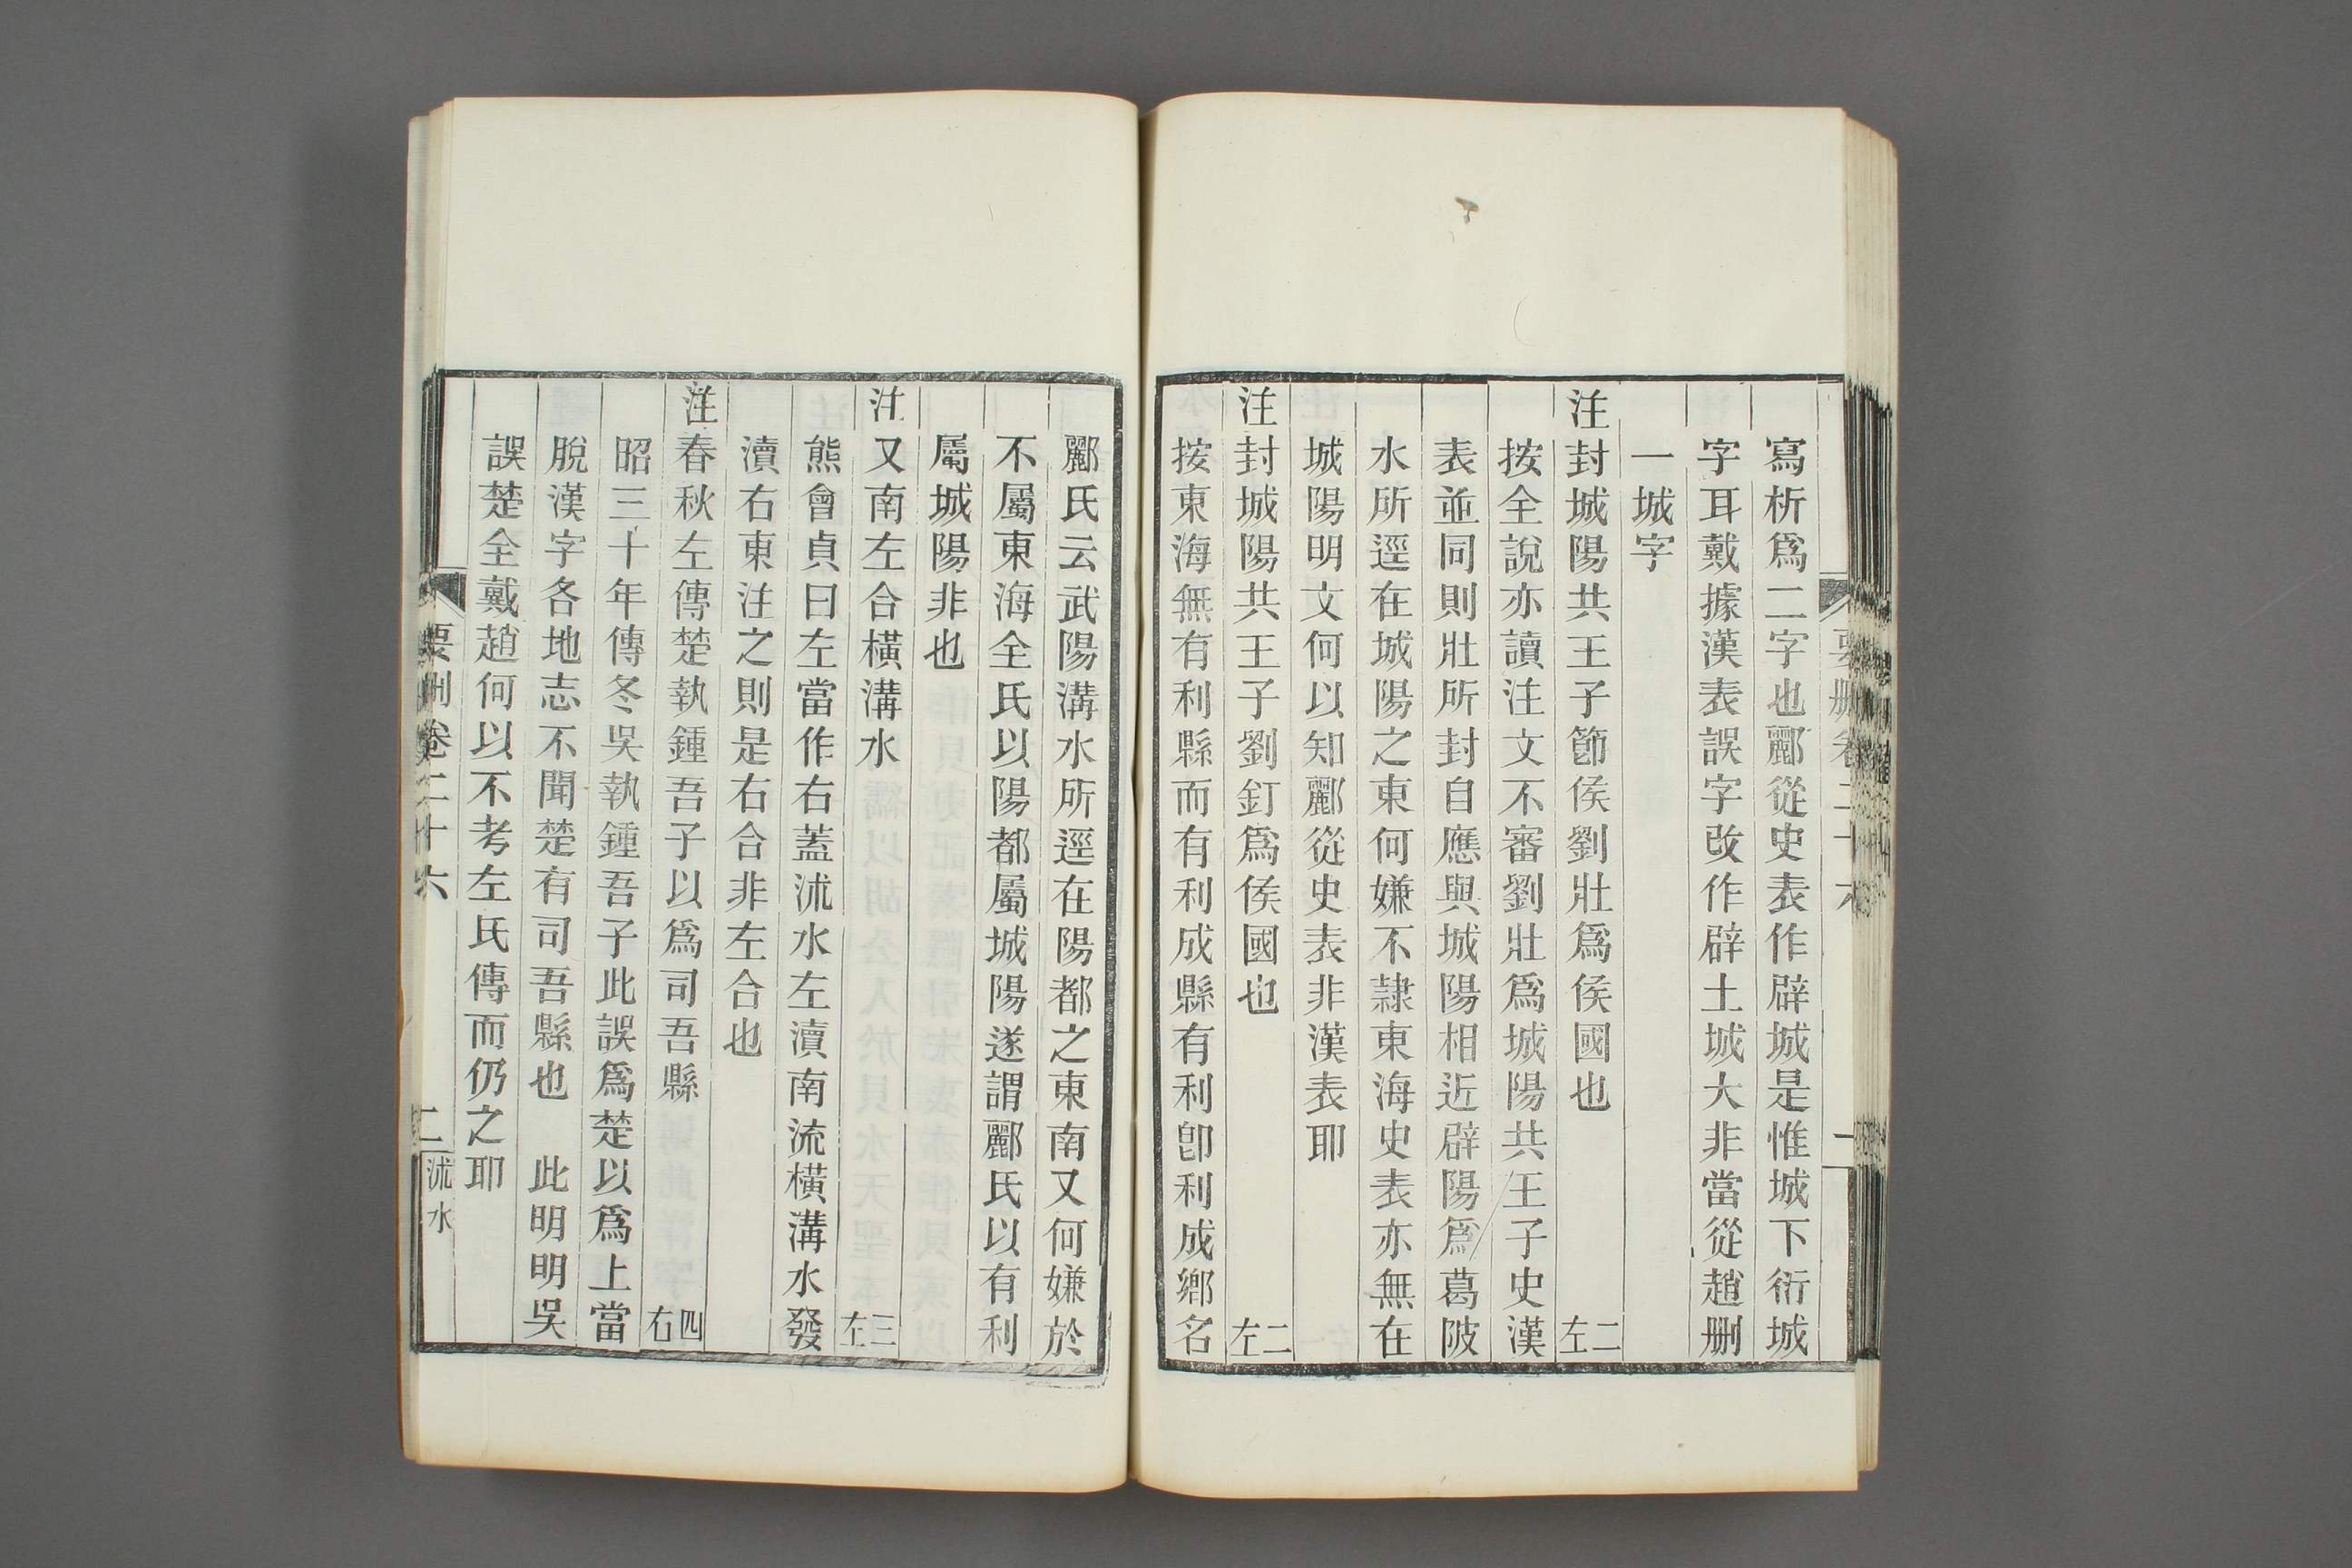 寫析爲二字也酈從史表作辟城是惟城下衍城
字耳戴據漢表誤字改作辟土城大非當從趙删
一城字
注封城陽共王子節侯劉壯爲侯國也 二左
按全說亦讀注文不審劉壯爲城陽共王子史漢
表並同則壯所封自應與城陽相近辟陽爲葛陂
水所逕在城陽之東何嫌不隸東海史表亦無在
城陽明文何以知酈從史表非漢表耶
注封城陽共王子劉釘爲侯國也 二左
按東海無有利縣而有利成縣有利卽利成鄉名
酈氏云武陽溝水所逕在陽都之東南又何嫌於
不屬東海全氏以陽都屬城陽遂謂酈氏以有利
屬城陽非也
注又南左合橫溝水 三左
熊會貞曰左當作右蓋沭水左瀆南流橫溝水發
瀆右東注之則是右合非左合也
注春秋左傳楚執鍾吾子以爲司吾縣 四右
昭三十年傳冬吳執鍾吾子此誤爲楚以爲上當
脫漢字各地志不聞楚有司吾縣也 此明明吳
誤楚全戴趙何以不考左氏傳而仍之耶
要删卷二十六 二 沭水